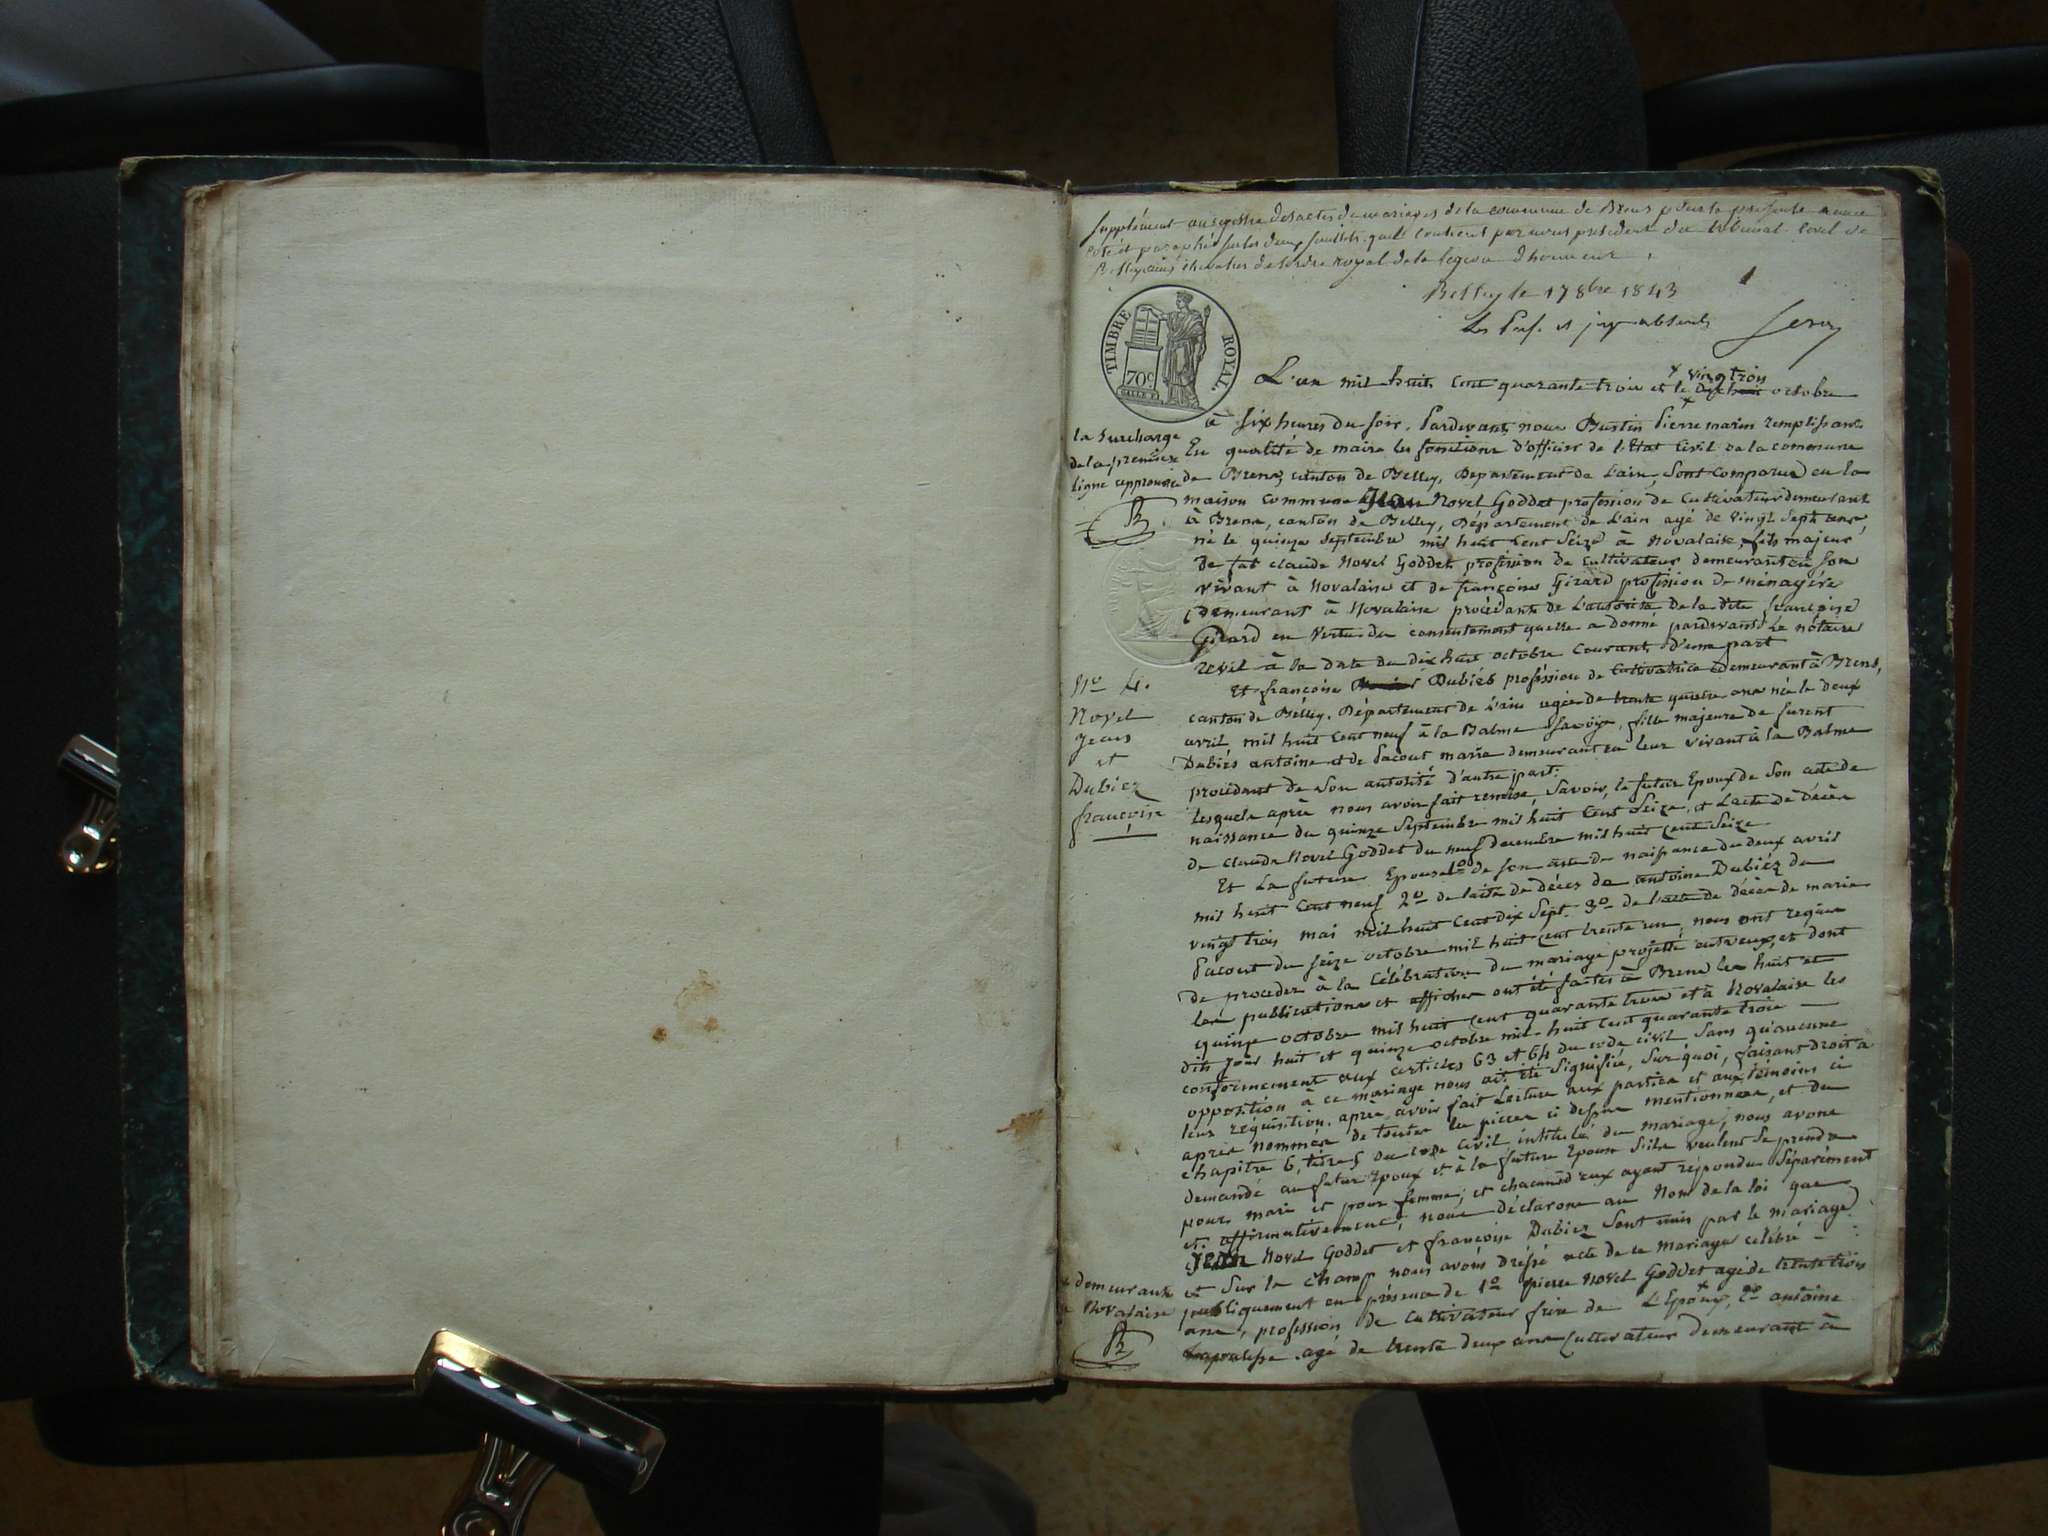 Supplément au registre des actes de mariages de la commune de Brens pour la presente année
coté et paraphé sur les deux feuillets quil contient par nous president du tribunal civil de
Belley chevalier de lordre royal de la legion dhonneur.
1
Belley le 17 8bre 1843
Les Pres. et juge absents
TIMBRE ROYAL.
70c
L'an mil huit cent quarante trois et le dix huit octobre
x vingt trois
à six heures du soir. Pardevant nous Bustin Pierre marin remplissant
la surcharge
de la premiere
ligne approuvée
En qualité de maire les fonctions d'officier de l'Etat Civil de la commune
de Brens, canton de Belley, Département de L'ain, sont comparus en la
maison commune Jean Novel Goddet profession de cultivateur demeurant
à Brens, canton de Belley, Département de L'ain agé de vingt sept ans,
né le quinze septembre mil huit cent seize à Novalaise, fils majeur
de fut claude Novel Goddet profission de cultivateur demeurant en son
vivant à Novalaise et de françoise Girard profission de ménagère
demeurant à Novalaise procédant de l'autorité de la dite françoise
Girard en vertu du consentement quelle a donné pardevant le notaire
revil à la date du dix huit octobre courant, d'une part
Et françoise Dubiez profission de cultivatrice demeurant à Brens,
canton de Belley. Département de L'ain agée de trente quatre ans née le deux
avril mil huit cent neuf à la Balme Savoye, fille majeure de furent
Dubiés antoine et de Pacout marie demeurant en leur vivant à la Balme
procédant de son autorité d'autre part.
N° 4.
Novel
Jean
et
Dubiez
françoise
Lesquels après nous avoir fait remise, savoir, le futur Epoux de son acte de
naissance du quinze septembre mil huit cent seize, et l'acte de décès
de claude Novel Goddet du neuf decembre mil huit cent seize
Et La future Epouse 1° de son acte de naissance du deux avril
mil huit cent neuf 2° de l'acte de décès de antoine Dubiéz du
vingt trois mai mil huit cent dix sept. 3° de l'acte de décès de marie
Pacout du seize octobre mil huit cent trente un, nous ont requis
de proceder à la célébration du mariage projetté entreux, et dont
les publications et affiches ont été faites à Brens les huit et
quinze octobre mil huit cent quarante trois et à Novalaise les
dits jours huit et quinze octobre mil huit cent quarante trois
conformement aux articles 63 et 64 du code civil sans qu'aucune
opposition à ce mariage nous ait été signifié, sur quoi, faisant droit à
leur réquisition. après avoir fait lecture aux parties et aux témoins ci
après nommés de toutes les pieces ci dessus mentionnées, et du
chapitre 6, titre 5 du code civil intitulé du mariage, nous avons
demandé au futur Epoux et à la future Epouse s'ils veulent se prendre
pour mari et pour femme; et chacun d'eux ayant répondu séparément
et affirmativement, nous déclarons au nom de la loi que
Jean Novel Goddet et françoise Dubiez sont unis par le mariage
et sur le champ nous avons dréssé acte de ce mariage célébré
publiquement en présence de 1° pierre Novel Goddet agé de trente trois
ans, profession de cultivateur frère de L'Epoux, 2° antoine
x demeurant
à Novalaise
agé de trente deux ans cultivateur demeurant à